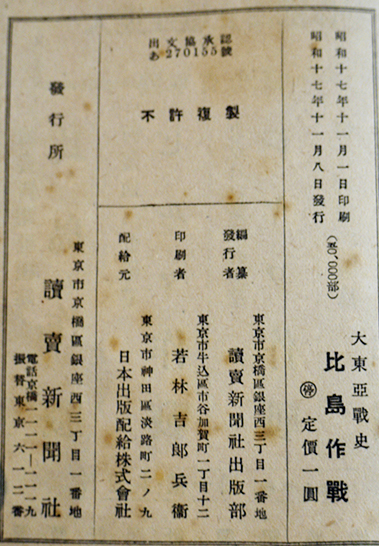 昭和十七年十一月一日印刷
昭和十七年十一月八日發行
(五〇、〇〇〇部)
大東亞戰史
比島作戰
停 定價一圓
出文協承認
あ270155號
不許複製
編纂
發行者
東京市京橋區銀座西三丁目一番地
讀賣新聞社出版部
印刷者
東京市牛込區市谷加賀町一丁目十二
若林吉郎兵衞
配給元
東京市神田區淡路町二ノ九
日本出版配給株式會社
發行所
東京市京橋區銀座西三丁目一番地
讀賣新聞社
電話京橋一一一一—一一一九
振替東京六一二番